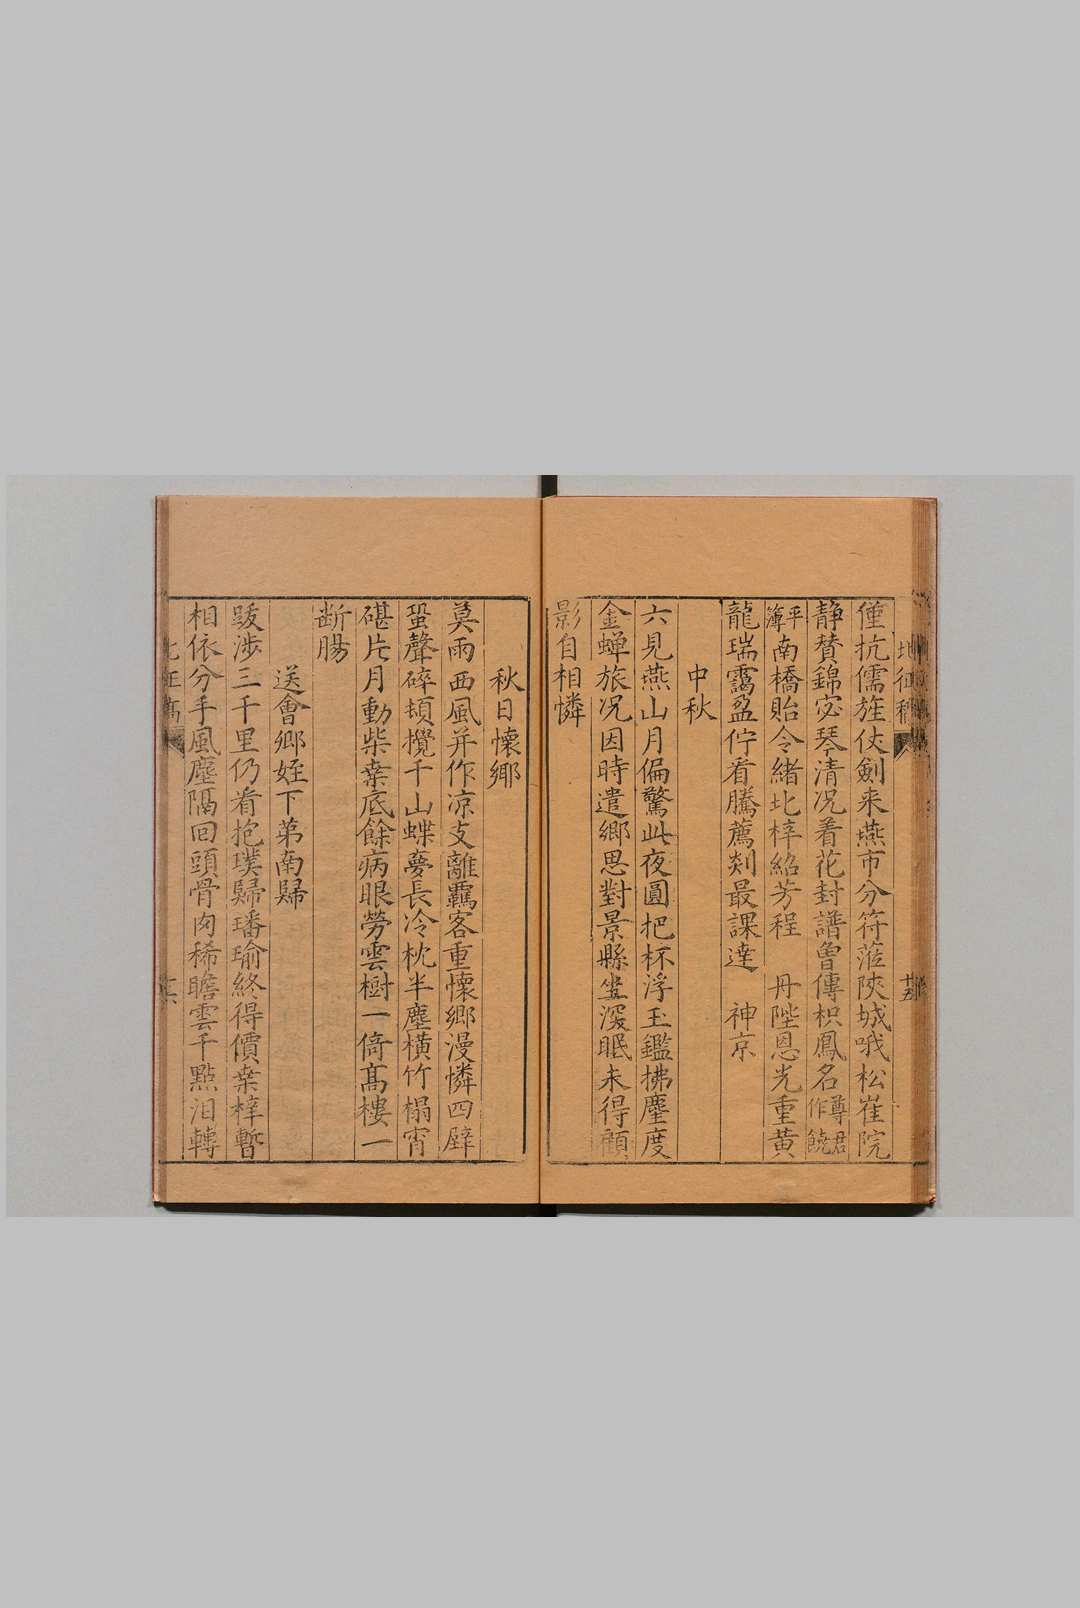 北征稿
十五
僅抗儒旌伏劍来燕市分符蒞陝城哦松崔院
静賛錦宓琴清况看花封譜魯傳枳鳳名尊君作饒
平簿南橋貽令緒北梓紹芳程 丹陛恩光重黄
龍瑞靄盈佇看騰薦剡最課達 神京
中秋
六見燕山月偏驚此夜圓把杯浮玉鑑拂塵度
金蟬旅况因時遣鄉思對景縣坐深眠未得顧
影自相憐
秋日懷鄉
莫雨西風并作凉支離羈客重懷鄉漫憐四壁
蛩聲碎頓攪千山蝶夢長冷枕半塵横竹榻宵
碪片月動柴桒底餘病眼勞雲樹一倚髙樓一
断腸
送會鄉姪下苐南歸
跋涉三千里仍看抱璞歸璠瑜終得價桒梓暫
相依分手風塵隔回頭骨肉稀瞻雲千點泪轉